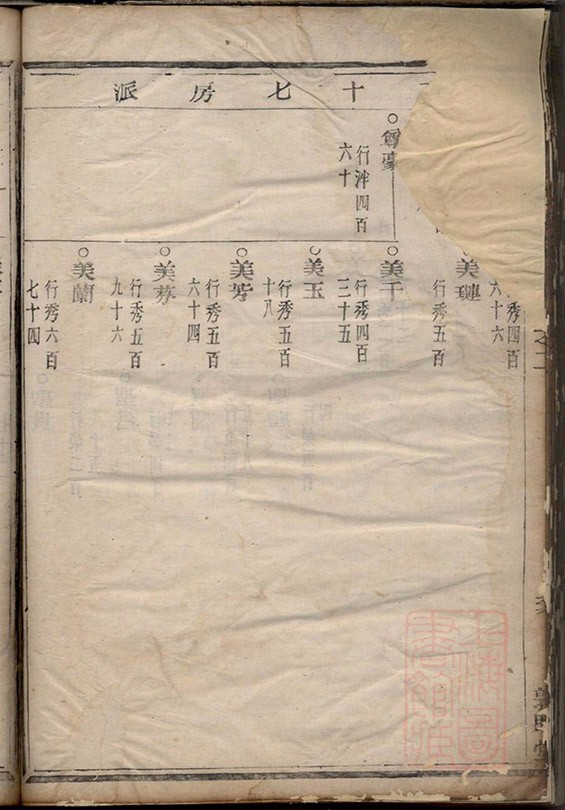 十七房派
○
行泮四百
六十
秀四百
六十六
○美璉
行秀五百
○美千
行秀四百
三十五
○美玉
行秀五百
十八
○美芳
行秀五百
六十四
○美芬
行秀五百
九十六
○美蘭
行秀六百
七十四
之二
上海圖
書館藏